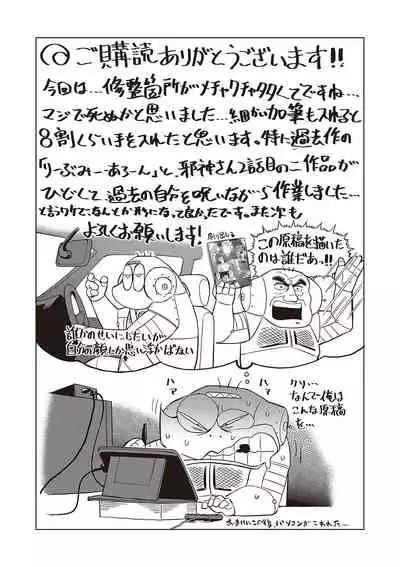 @ご購読ありがとうございます!!
今回は…修整箇所がメチャクチャ多くてですね…
マジで死ぬかと思いました…細かい加筆も入れると
8割くらい手を入れたと思います。特に過去作の
「りーぶみーあろーん」と、邪神さん2話目の二作品が
ひどくして過去の自分を呪いながら作業しました…
と言うワケで、なんとか形になって良かったです。また次も
よろしくお願いします!
この原稿を描いた
のは誰だあっ!!
誰かのせいにしたいが
自分の顔しか思い浮かばない
ハァ
ハァ
クソ…
なんで俺は
こんな原稿
を…